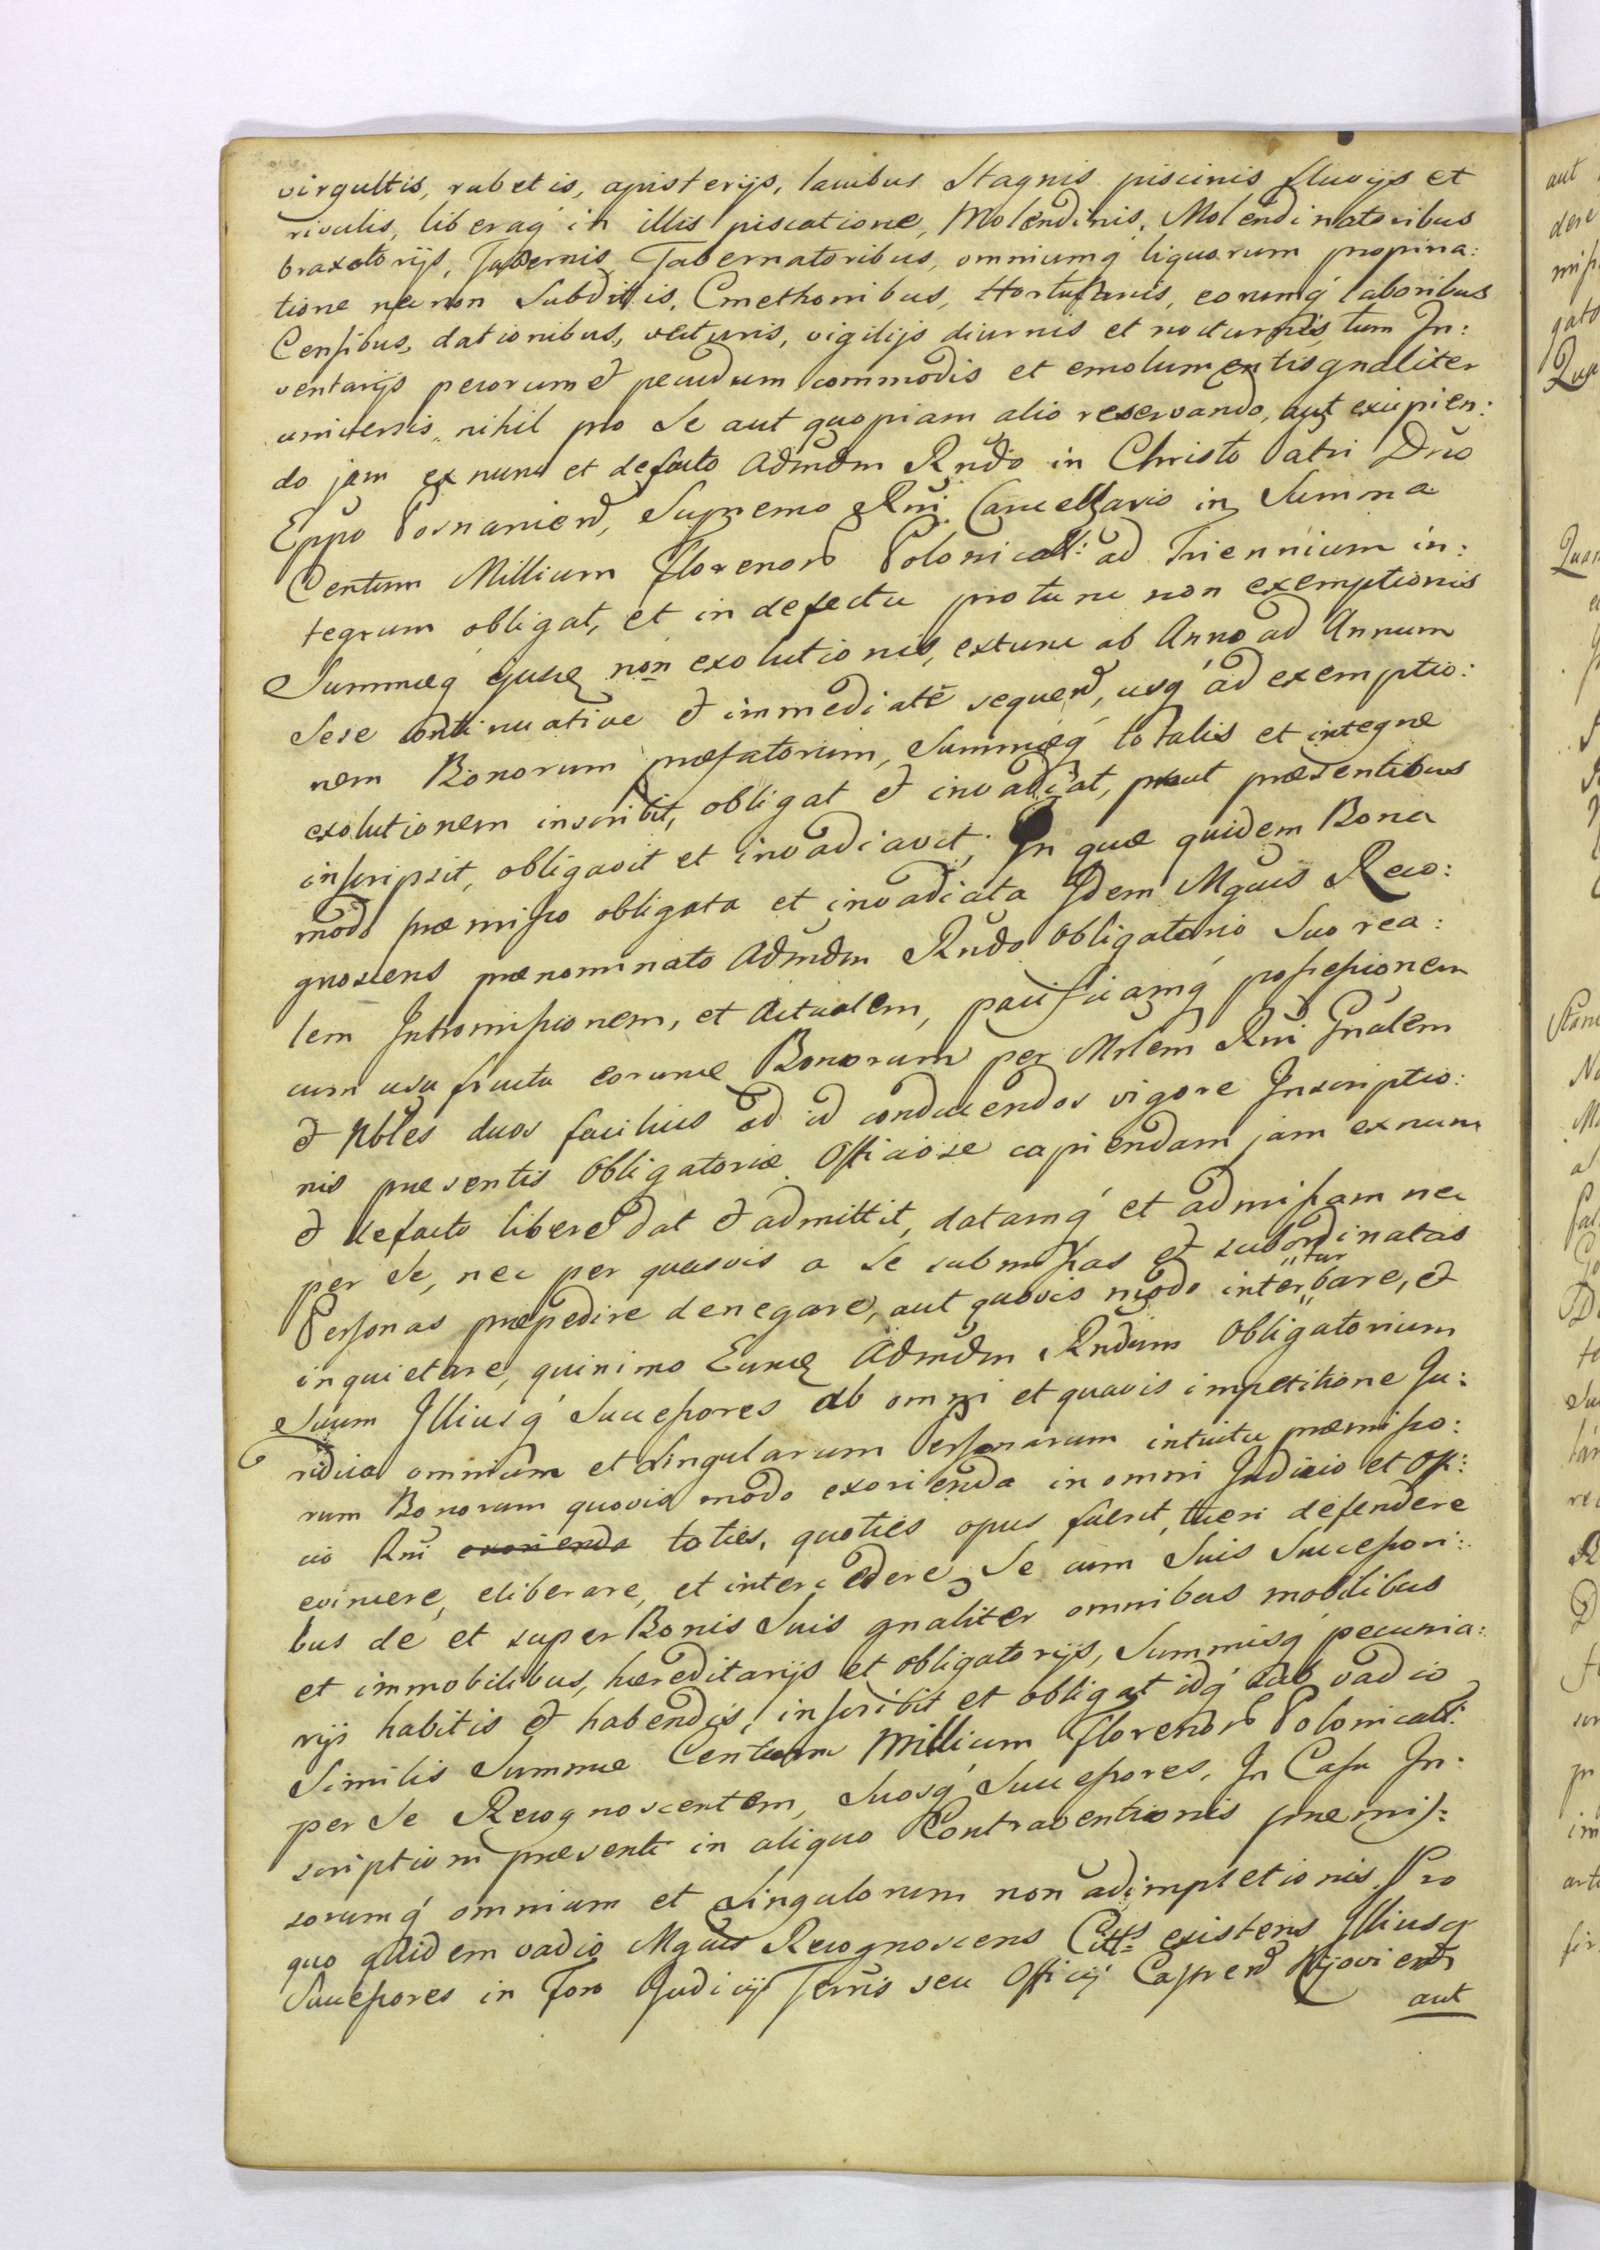 virgultis, rubetis, apisterijs, lacubus Stagnis piscinis fluvijs et
rivulis, liberaq́ in illis piscatione, Molendinis, Molendinatoribus
braxatorijs, Tabernis Tabernatoribus, omniumq́ liquorum propina:
tione necnon Subditis, Cmethonibus, Hortulanis, eorumq́ laboribus
Censibus, dationibus, vecturis, vigilijs diurnis et nocturnis, tum In:
ventarijs pecorum et pecudum commodis et emolumentis gnaliter
universis, nihil pro Se aut quopiam alio reservando, aut excipien:
do jam ex nunc et defacto Admdm Rndo in Christo Patri Dno
Eppo Posnanien, Supremo Rni Cancellario in Summa
Centum Millium Florenor Polonicall: ad Triennium in:
tegrum obligat, et in defectu protunc non exemptionis
Summæq́ ejusq non exolutionis, extunc ab Anno ad Annum
Sese continuative et immediatè sequen, usq́ ad exemptio:
nem Bonorum præfatorum, Summæq́ totalis et integræ
exolutionem inscribit, obligat et invadiat, prout præsentibus
inscripsit, obligavit et invadiavit; In quæ quidem Bona
modo præmisso obligata et invadiata Idem Mgcus Reco:
gnoscens prænominato Admdm Rndo Obligatorio Suo rea:
lem Intromissionem, et Actualem, pacificamq́ possessionem
cum usu fructu eorumq Bonorum per Mrlem Rni Gnalem
et Nbles duos facilius ad id conducendos vigore Inscriptio:
nis præsentis Obligatoriæ Officiose capiendam jam exnunc
et defacto libere dat et admittit, datamq́ et admissam nec
per Se, nec per quasvis a Se submissas et subordinatas
Personas præpedire denegare, aut quovis modo interturbare, et
inquietare, quinimo Eumq Admdm Rndum Obligatorium
Suum Illiusq́ Successores ab omni et quavis impetitione Ju:
ridica omnium et Singularum Personarum intuitu præmisso:
rum Bonorum quovis modo exorienda in omni Judicio et Offi:
cio Rni exorienda toties, quoties opus fuerit, tueri defendere
evincere, eliberare, et intercedere, Se cum Suis Successori:
bus de et super Bonis Suis gnaliter omnibus mobilibus
et immobilibus, hæreditarijs et obligatorijs, Summisq́ pecunia:
rijs habitis et habendis, inscribit et obligat idq́ sub vadio
Similis Summæ Centum Millium Florenor Polonicall:
per Se Recognoscentem, Suosq́ Successores, In Casu In:
scriptioni præsenti in aliquo Contraventionis præmis:
sorumq́ omnium et Singulorum non adimpletionis. Pro
quo quidem vadio Mgcus Recognoscens Citts existens Illiusq
Successores in Foro Judicij Terris seu Officij Castren Kijovien
aut